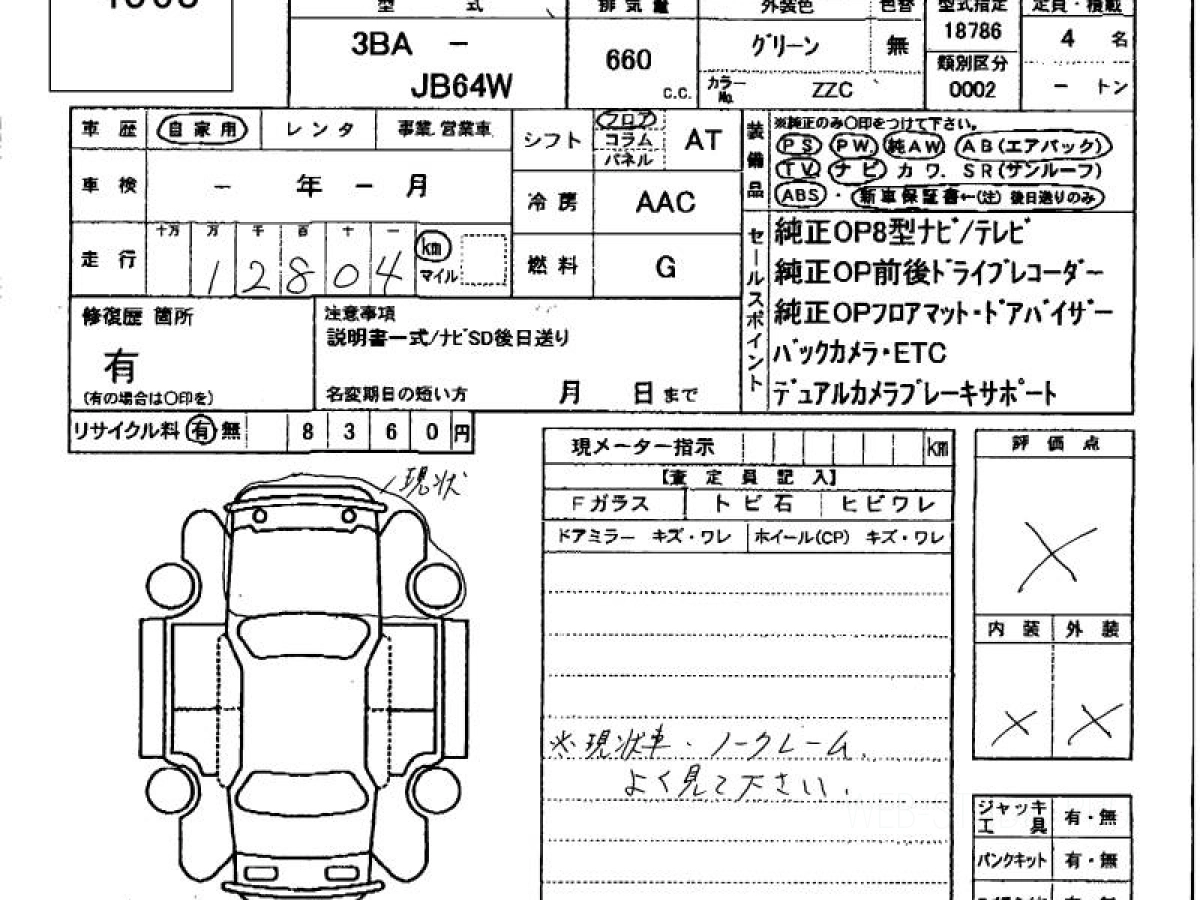 型 式
排気量
外装色
色替
型式指定
定員・積載
3BA －
JB64W
660
c.c.
グリーン
無
カラーNo.
ZZC
18786
類別区分
0002
4 名
－ トン
車歴
自家用
レンタ
事業.営業車
シフト
フロア
コラム
パネル
AT
装備品
※純正のみ〇印をつけて下さい。
PS PW 純AW AB(エアバック)
TV ナビ カワ. SR(サンルーフ)
ABS ・ 新車保証書←(注) 後日送りのみ
車検
－ 年 － 月
冷房
AAC
走行
十万 万 千 百 十 一
1 2 8 0 4
km
マイル
燃料
G
セールスポイント
純正OP8型ナビ/テレビ
純正OP前後ドライブレコーダー
純正OPフロアマット・ドアバイザー
バックカメラ・ETC
デュアルカメラブレーキサポート
修復歴 箇所
有
(有の場合は〇印を)
注意事項
説明書一式/ナビSD後日送り
名変期日の短い方 月 日まで
リサイクル料 有 無 8 3 6 0 円
現メーター指示 km
【査定員記入】
Fガラス
トビ石
ヒビワレ
ドアミラー キズ・ワレ
ホイール(CP) キズ・ワレ
評価点
内装
外装
現状
※現状車・ノークレーム.
よく見て下さい.
ジャッキ
工具
有・無
パンクキット
有・無